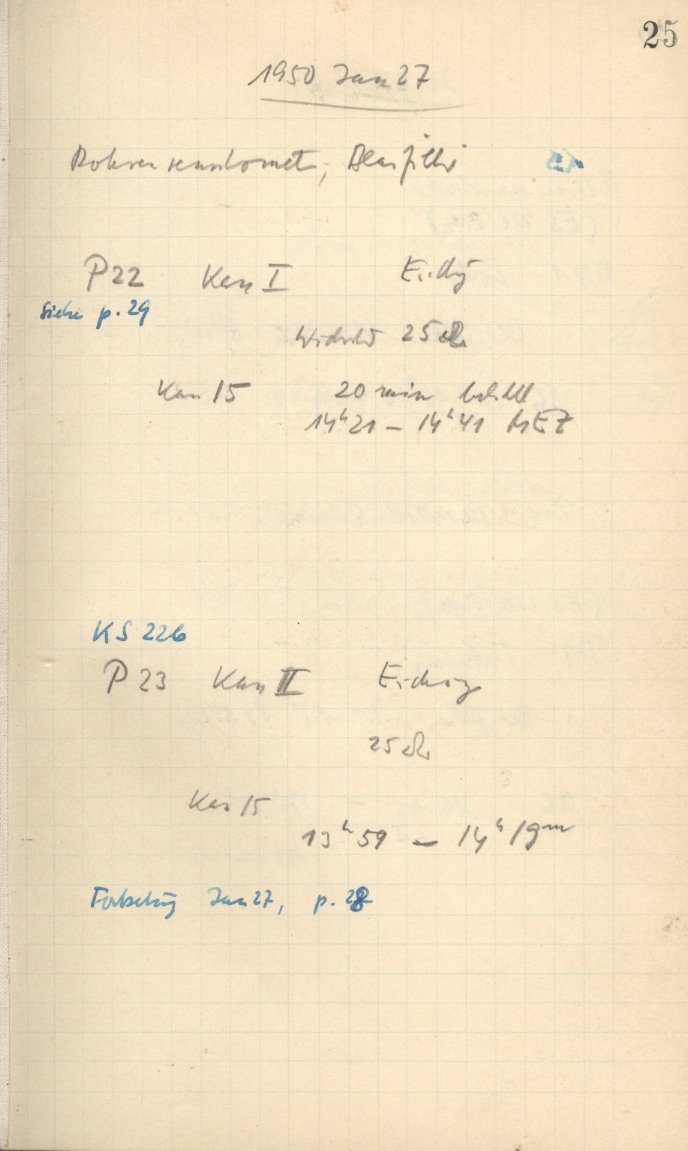 25
1950 Jan 27
Röhrensensitomet, Blaufilter
P22 Kas I Eichg
Siehe p. 29
Widerst 25 Ω
Kas 15 20 min belicht
14h21 – 14h41 MEZ
KS 226
P 23 Kas II Eichung
25 Ω
Kas 15
13h59 – 14h19m
Fortsetzung Jan 27, p. 28